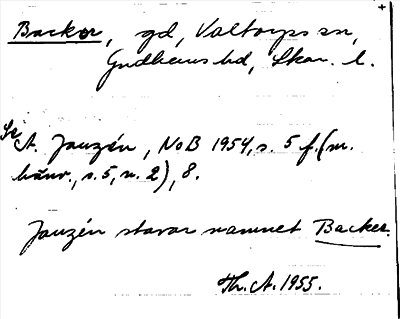 Backor, gd, Valtorps sn,
Gudhems hd, Skar. l.
Se A. Janzén, NoB 1954, s. 5 f. (m.
hänv., s. 5, n. 2), 8.
Janzén stavar namnet Backer.
Th. A. 1955.